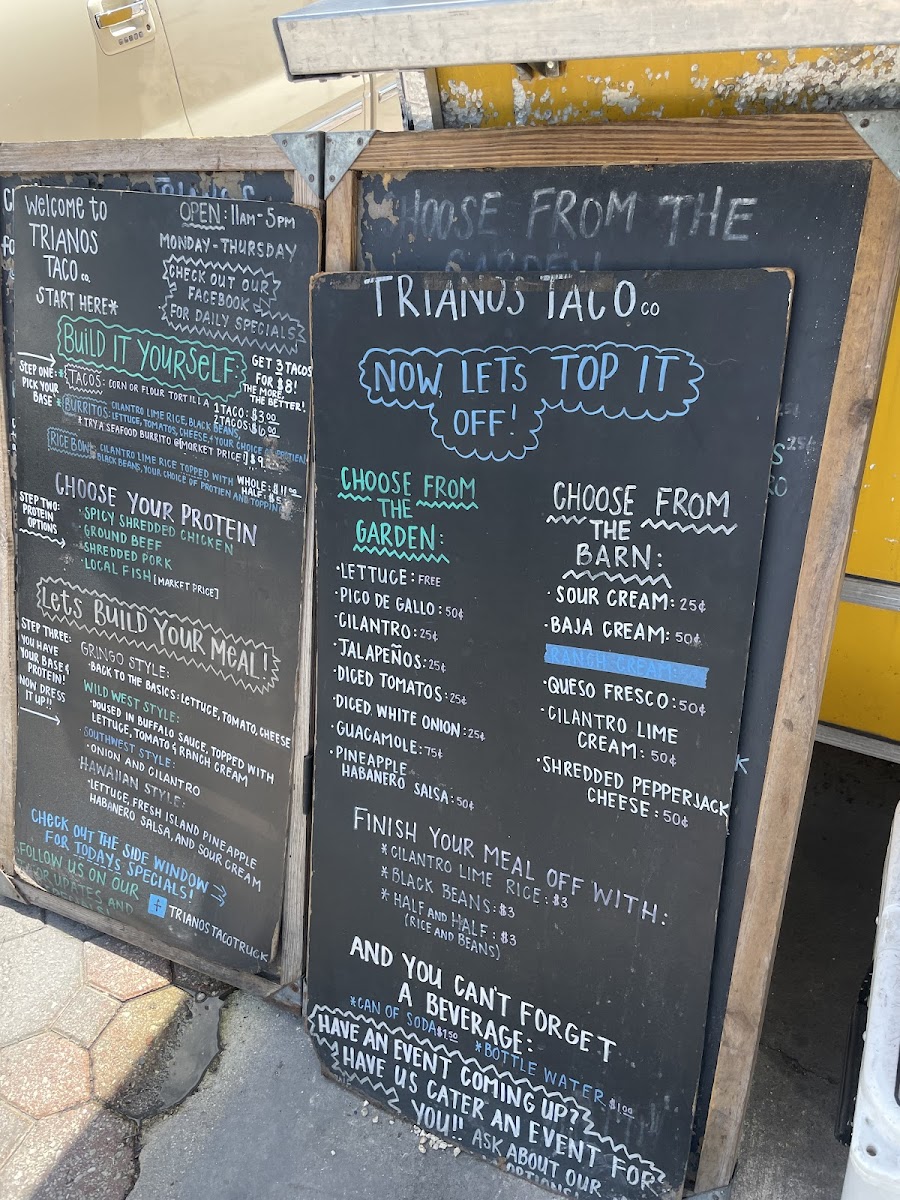 Welcome to
TRIANOS
TACO CO.
START HERE*
OPEN: 11AM-5PM
MONDAY-THURSDAY
CHECK OUT OUR
FACEBOOK
FOR DAILY SPECIALS
BUILD IT YOURSELF:
GET 3 TACOS
FOR $8!
THE MORE,
THE BETTER!
STEP ONE:
PICK YOUR
BASE
*TACOS: CORN OR FLOUR TORTILLA
1 TACO: $3.00
2 TACOS: $6.00
*BURRITOS: CILANTRO LIME RICE, BLACK BEANS,
LETTUCE, TOMATOS, CHEESE, & YOUR CHOICE OF PROTIEN!
*TRY A SEAFOOD BURRITO @[MARKET PRICE!] $9
RICE BOWL: CILANTRO LIME RICE TOPPED WITH
BLACK BEANS, YOUR CHOICE OF PROTIEN AND TOPPING
WHOLE: $11.00
HALF: $5
CHOOSE YOUR PROTEIN
STEP TWO:
PROTEIN
OPTIONS
·SPICY SHREDDED CHICKEN
·GROUND BEEF
·SHREDDED PORK
·LOCAL FISH [MARKET PRICE]
LETS BUILD YOUR MEAL!
STEP THREE:
YOU HAVE
YOUR BASE &
PROTEIN!
NOW DRESS
IT UP!!
GRINGO STYLE:
·BACK TO THE BASICS: LETTUCE, TOMATO, CHEESE
WILD WEST STYLE:
·DOUSED IN BUFFALO SAUCE, TOPPED WITH
LETTUCE, TOMATO & RANCH CREAM
SOUTHWEST STYLE:
·ONION AND CILANTRO
HAWAIIAN STYLE:
·LETTUCE, FRESH ISLAND PINEAPPLE
HABANERO SALSA, AND SOUR CREAM
CHECK OUT THE SIDE WINDOW
FOR TODAYS SPECIALS!
FOLLOW US ON OUR
FOR UPDATES
AND
f TRIANOSTACOTRUCK
CHOOSE FROM THE
GARDEN
TRIANOS TACO CO
NOW, LETS TOP IT
OFF!
CHOOSE FROM
THE
GARDEN:
·LETTUCE: FREE
·PICO DE GALLO: 50¢
·CILANTRO: 25¢
·JALAPEÑOS: 25¢
·DICED TOMATOS: 25¢
·DICED WHITE ONION: 25¢
·GUACAMOLE: 75¢
·PINEAPPLE
HABANERO SALSA: 50¢
CHOOSE FROM
THE
BARN:
·SOUR CREAM: 25¢
·BAJA CREAM: 50¢
RANCH CREAM:
·QUESO FRESCO: 50¢
·CILANTRO LIME
CREAM: 50¢
·SHREDDED PEPPERJACK
CHEESE: 50¢
FINISH YOUR MEAL OFF WITH:
*CILANTRO LIME RICE: $3
*BLACK BEANS: $3
*HALF AND HALF: $3
(RICE AND BEANS)
AND YOU CAN'T FORGET
A BEVERAGE:
*CAN OF SODA $1.50
*BOTTLE WATER $1.00
HAVE AN EVENT COMING UP??
HAVE US CATER AN EVENT FOR
YOU!! ASK ABOUT OUR
OPTIONS!